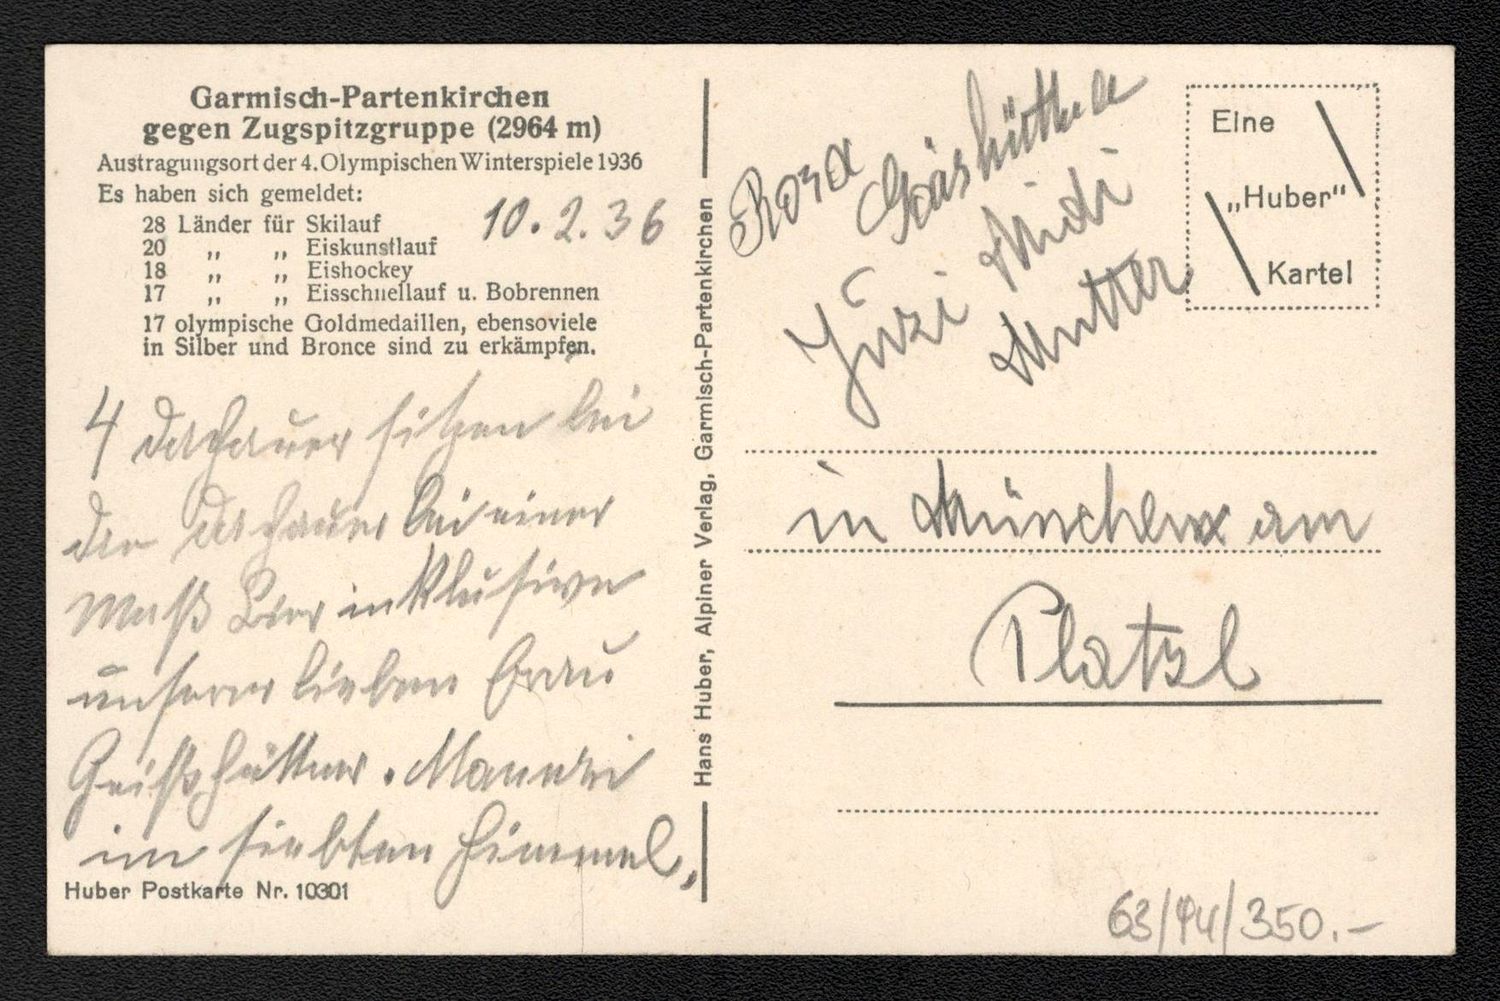 Garmisch-Partenkirchen
gegen Zugspitzgruppe (2964 m)
Austragungsort der 4. Olympischen Winterspiele 1936
Es haben sich gemeldet:
28 Länder für Skilauf
20 „ „ Eiskunstlauf
18 „ „ Eishockey
17 „ „ Eisschnellauf u. Bobrennen
17 olympische Goldmedaillen, ebensoviele
in Silber und Bronce sind zu erkämpfen.
10.2.36
4 Dachauer sitzen bei
der Dachauer bei einer
Maß Bier inklusive
unserer lieben Frau
im siebten Himmel,
Huber Postkarte Nr. 10301
Hans Huber, Alpiner Verlag, Garmisch-Partenkirchen
Rosa
Midi
Mutter
Eine
„Huber“
Kartel
in München am
Platzl
63/94/350.-